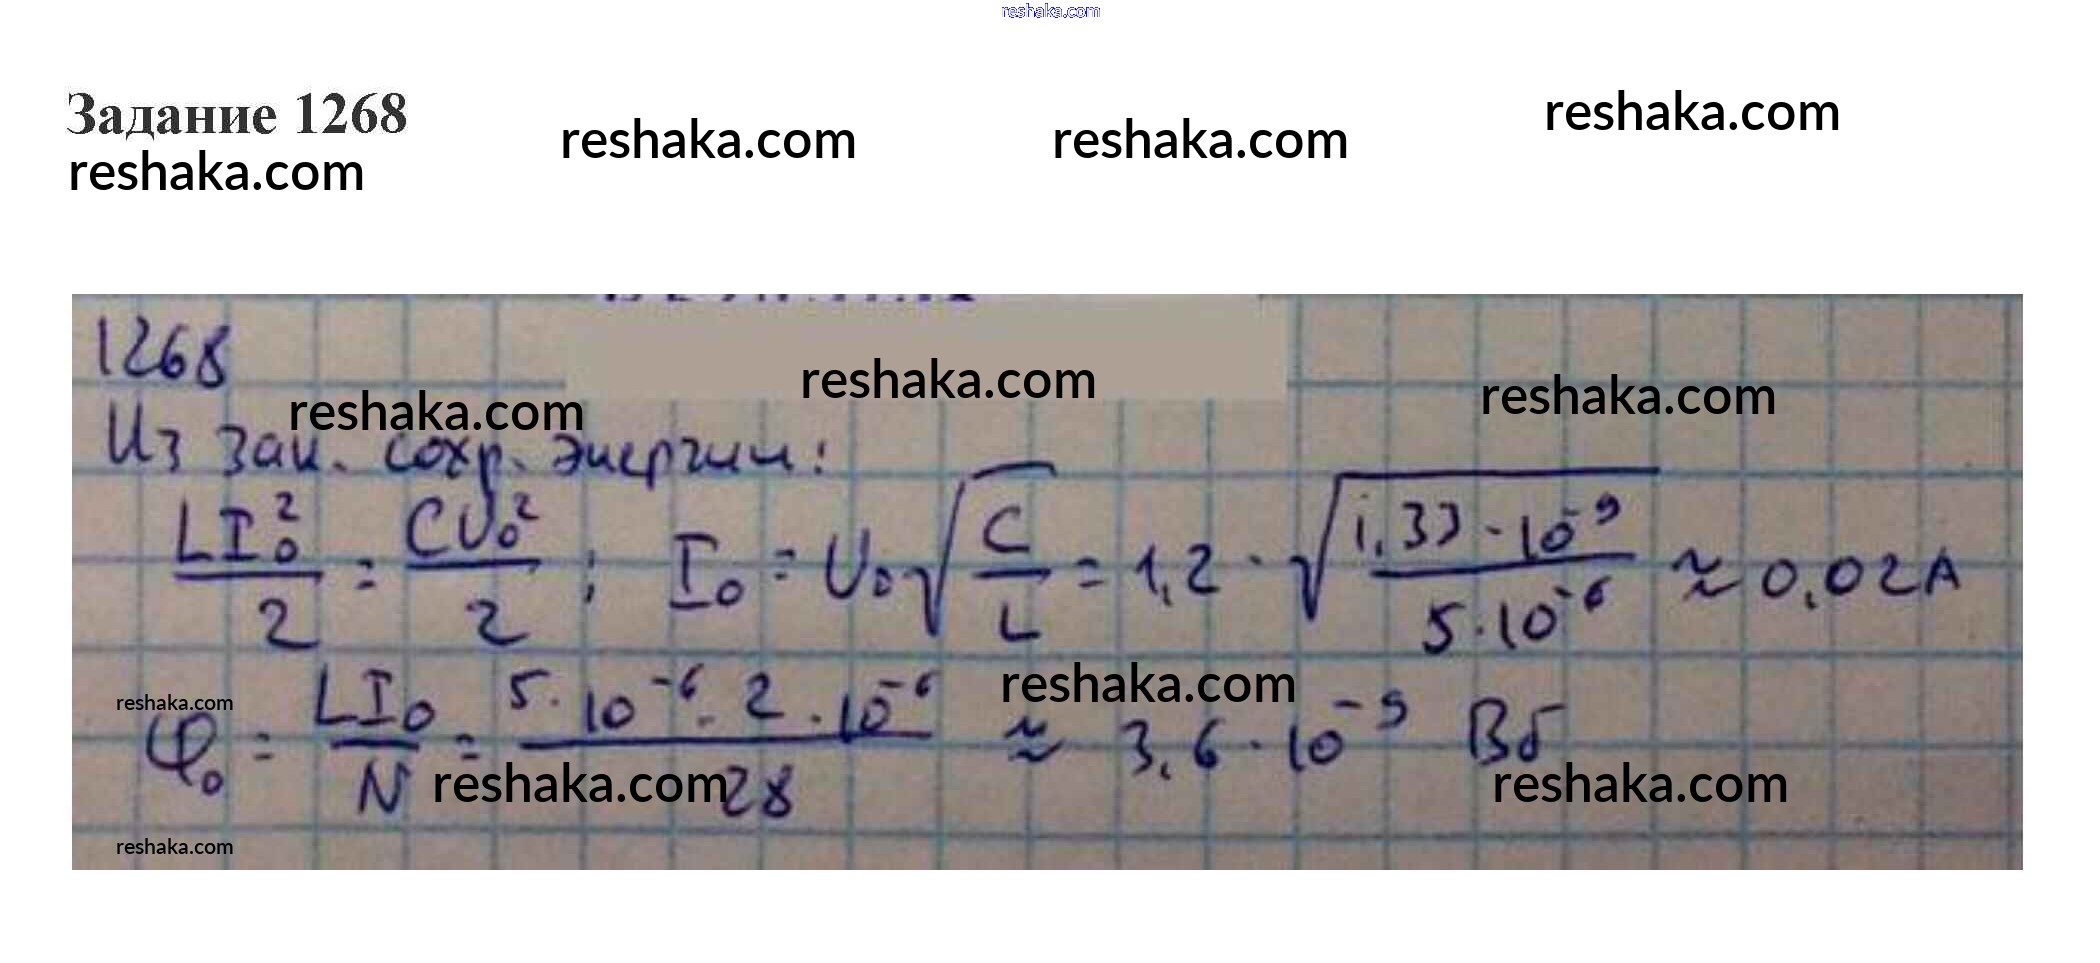 reshaka.com
Задание 1268
reshaka.com reshaka.com reshaka.com
reshaka.com
1268
reshaka.com reshaka.com reshaka.com
Из зак. сохр. энергии:
LI₀²/2 = CU₀²/2 ; I₀ = U₀√(C/L) = 1,2 · √(1,33 · 10⁻⁹/5 · 10⁻⁶) ≈ 0,02 А
reshaka.com reshaka.com
φ₀ = LI₀/N = 5 · 10⁻⁶ · 2 · 10⁻⁶/28 ≈ 3,6 · 10⁻⁹ Вб
reshaka.com reshaka.com
reshaka.com